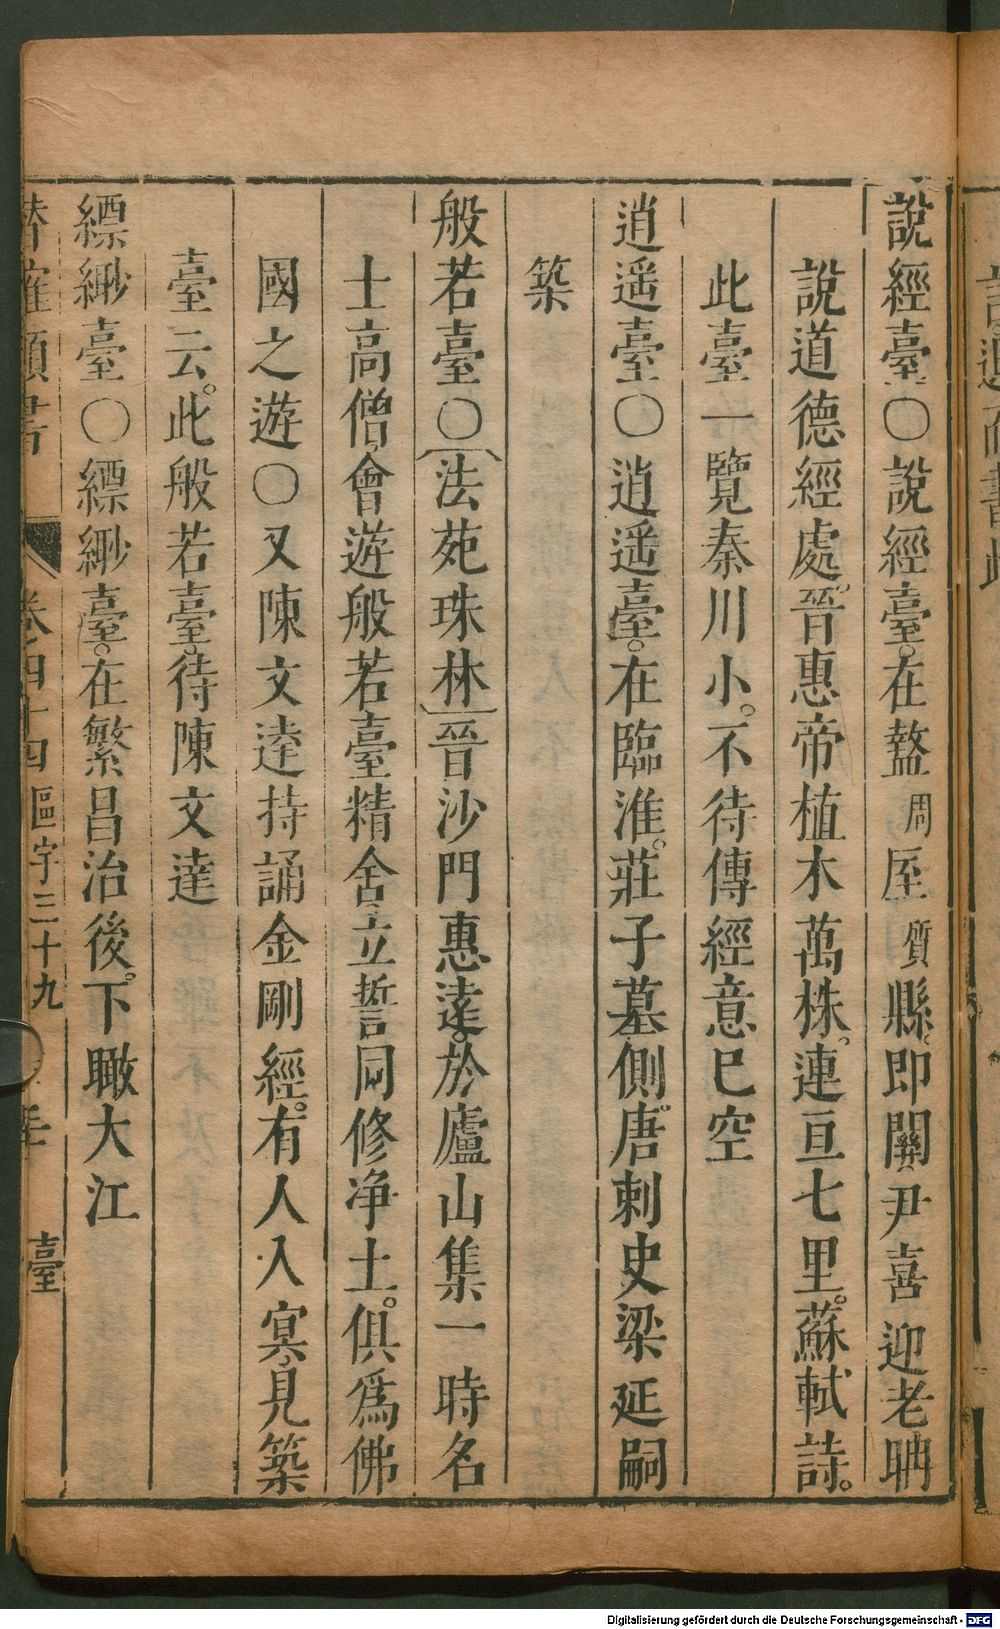 說經臺○說經臺。在盩周厔質縣。即關尹喜迎老聃
說道德經處。晉惠帝植木萬株。連亘七里。蘇軾詩。
此臺一覽秦川小。不待傳經意已空
逍遥臺○逍遥臺。在臨淮。莊子墓側。唐刺史梁延嗣
築
般若臺○法苑珠林晉沙門惠逺。於廬山集一時名
士高僧。會遊般若臺精舍。立誓同修净土。俱爲佛
國之遊○又陳文逹持誦金剛經。有人入㝠。見築
臺云。此般若臺。待陳文達
縹緲臺○縹緲臺。在繁昌治後。下瞰大江
潛確類書 卷之四十四 區宇三十九 臺
Digitalisierung gefördert durch die Deutsche Forschungsgemeinschaft - DFG